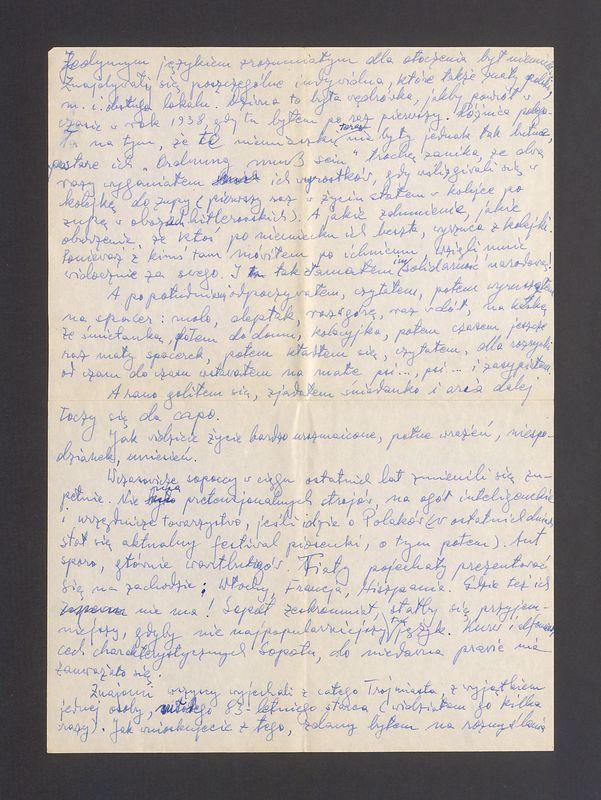 Jedynym językiem zrozumiałym dla otoczenia był niemiecki
Znajdywały się poszczególne indywidua, które także znały polski,
m. i. obsługa lokalu. Dziwna to była wędrówka, jakby powrót w
czasie w rok 1938, gdy tu byłem po raz pierwszy. Różnica polega-
ła na tym, że te niemiaszki teraz nie były jednak tak butne,
stare ich "Ordnung muß sein" trochę zanika, że dwa
razy wyganiałem ich wyrostków, gdy wślizgiwali się w
kolejkę do zupy (pierwszy raz w życiu stałem w kolejce po
zupę w obozach hitlerowskich). A jakie zdumienie, jakie
oburzenie, że ktoś po niemiecku ich beszta, wyrzuca z kolejki.
Ponieważ z kimś tam mówiłem po ichniemu, wzięli mnie
widocznie za swego. I tak złamałem im solidarność narodową!
A popołudniu odpoczywałem, czytałem, potem wyruszałem
na spacer: molo, deptak, raz w górę, raz w dół, na kawkę
ze śmietanką, potem do domu, kolacyjka, potem czasem jeszcze
raz mały spacerek, potem kładłem się, czytałem, dla rozrywki
od czasu do czasu wstawałem na małe psi..., psi... i zasypiałem.
A rano goliłem się, zjadałem śniadanko i aria dalej
toczy się da capo.
Jak widzicie życie bardzo urozmaicone, pełne wrażeń, niespo-
dzianek, uniesień.
Wczasowicze sopoccy w ciągu ostatnich lat zmienili się zu-
pełnie. Nie ma pretensjonalnych strojów, na ogół inteligenckie
i urzędnicze towarzystwo, jeśli idzie o Polaków (w ostatnich dniach
stał się aktualny festiwal piosenki, o tym potem). Aut
sporo, głównie wartburgów. Fiaty pojechały prezentować
się na zachodzie: Włochy, Francja, Hiszpania. Gdzie też ich
nie ma! Sopot zeskromniał, stałby się przyjem-
niejszy, gdyby nie najpopularniejszy tu język. Kurw i
cech charakterystycznych Sopotu, do niedawna prawie nie
zauważało się.
Znajomi wszyscy wyjechali z całego Trójmiasta, z wyjątkiem
jednej osoby, 83-letniego starca (widziałem go kilka
razy). Jak wnioskujecie z tego, zdany byłem na rozmyślania